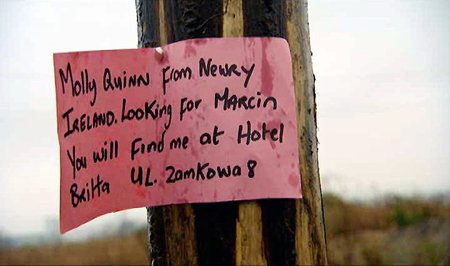 Molly Quinn From Newry
IRELAND. Looking for MARCIN
You will Find me at Hotel
Britta UL. Zamkowa 8